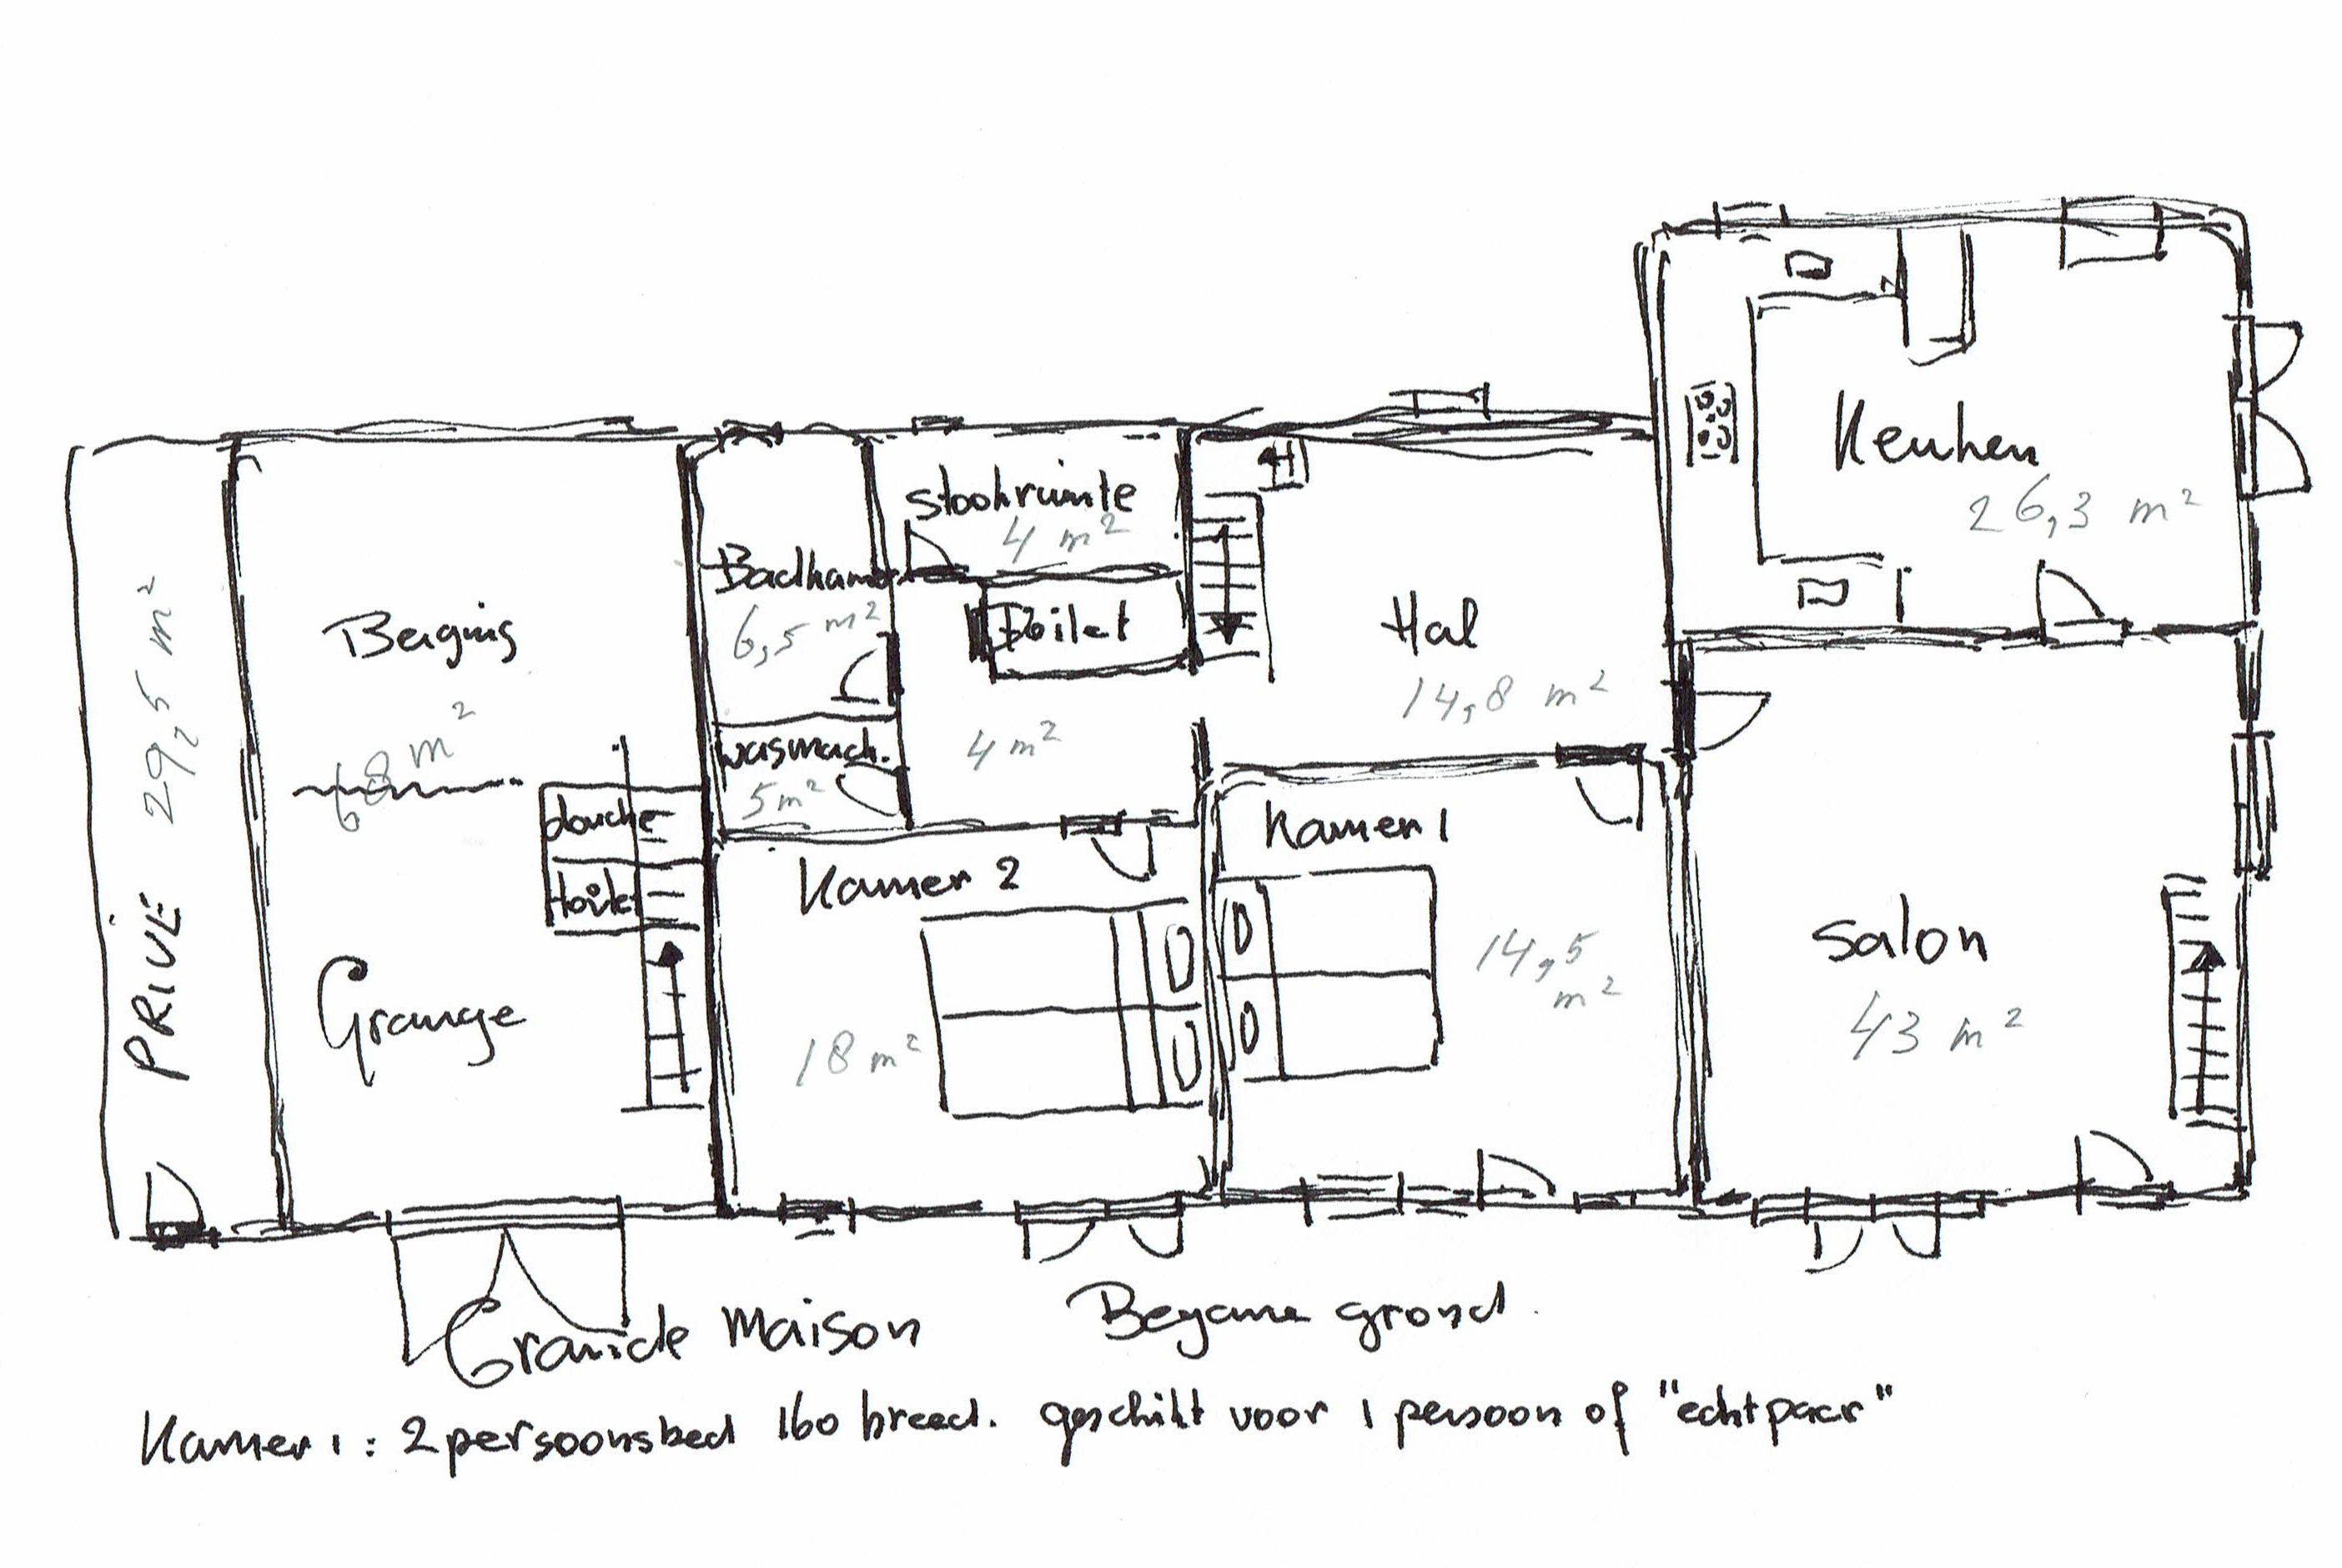 Keuken
26,3 m²
stookruimte
4 m²
Badkamer
6,5 m²
Toilet
Hal
14,8 m²
Berging
68 m²
PRIVÉ 29,5 m²
wasmach.
5 m²
4 m²
douche
toilet
Kamer 1
14,5 m²
Kamer 2
18 m²
salon
43 m²
Grange
Grande maison
Begane grond.
Kamer 1: 2 persoonsbed 160 breed. geschikt voor 1 persoon of "echtpaar"